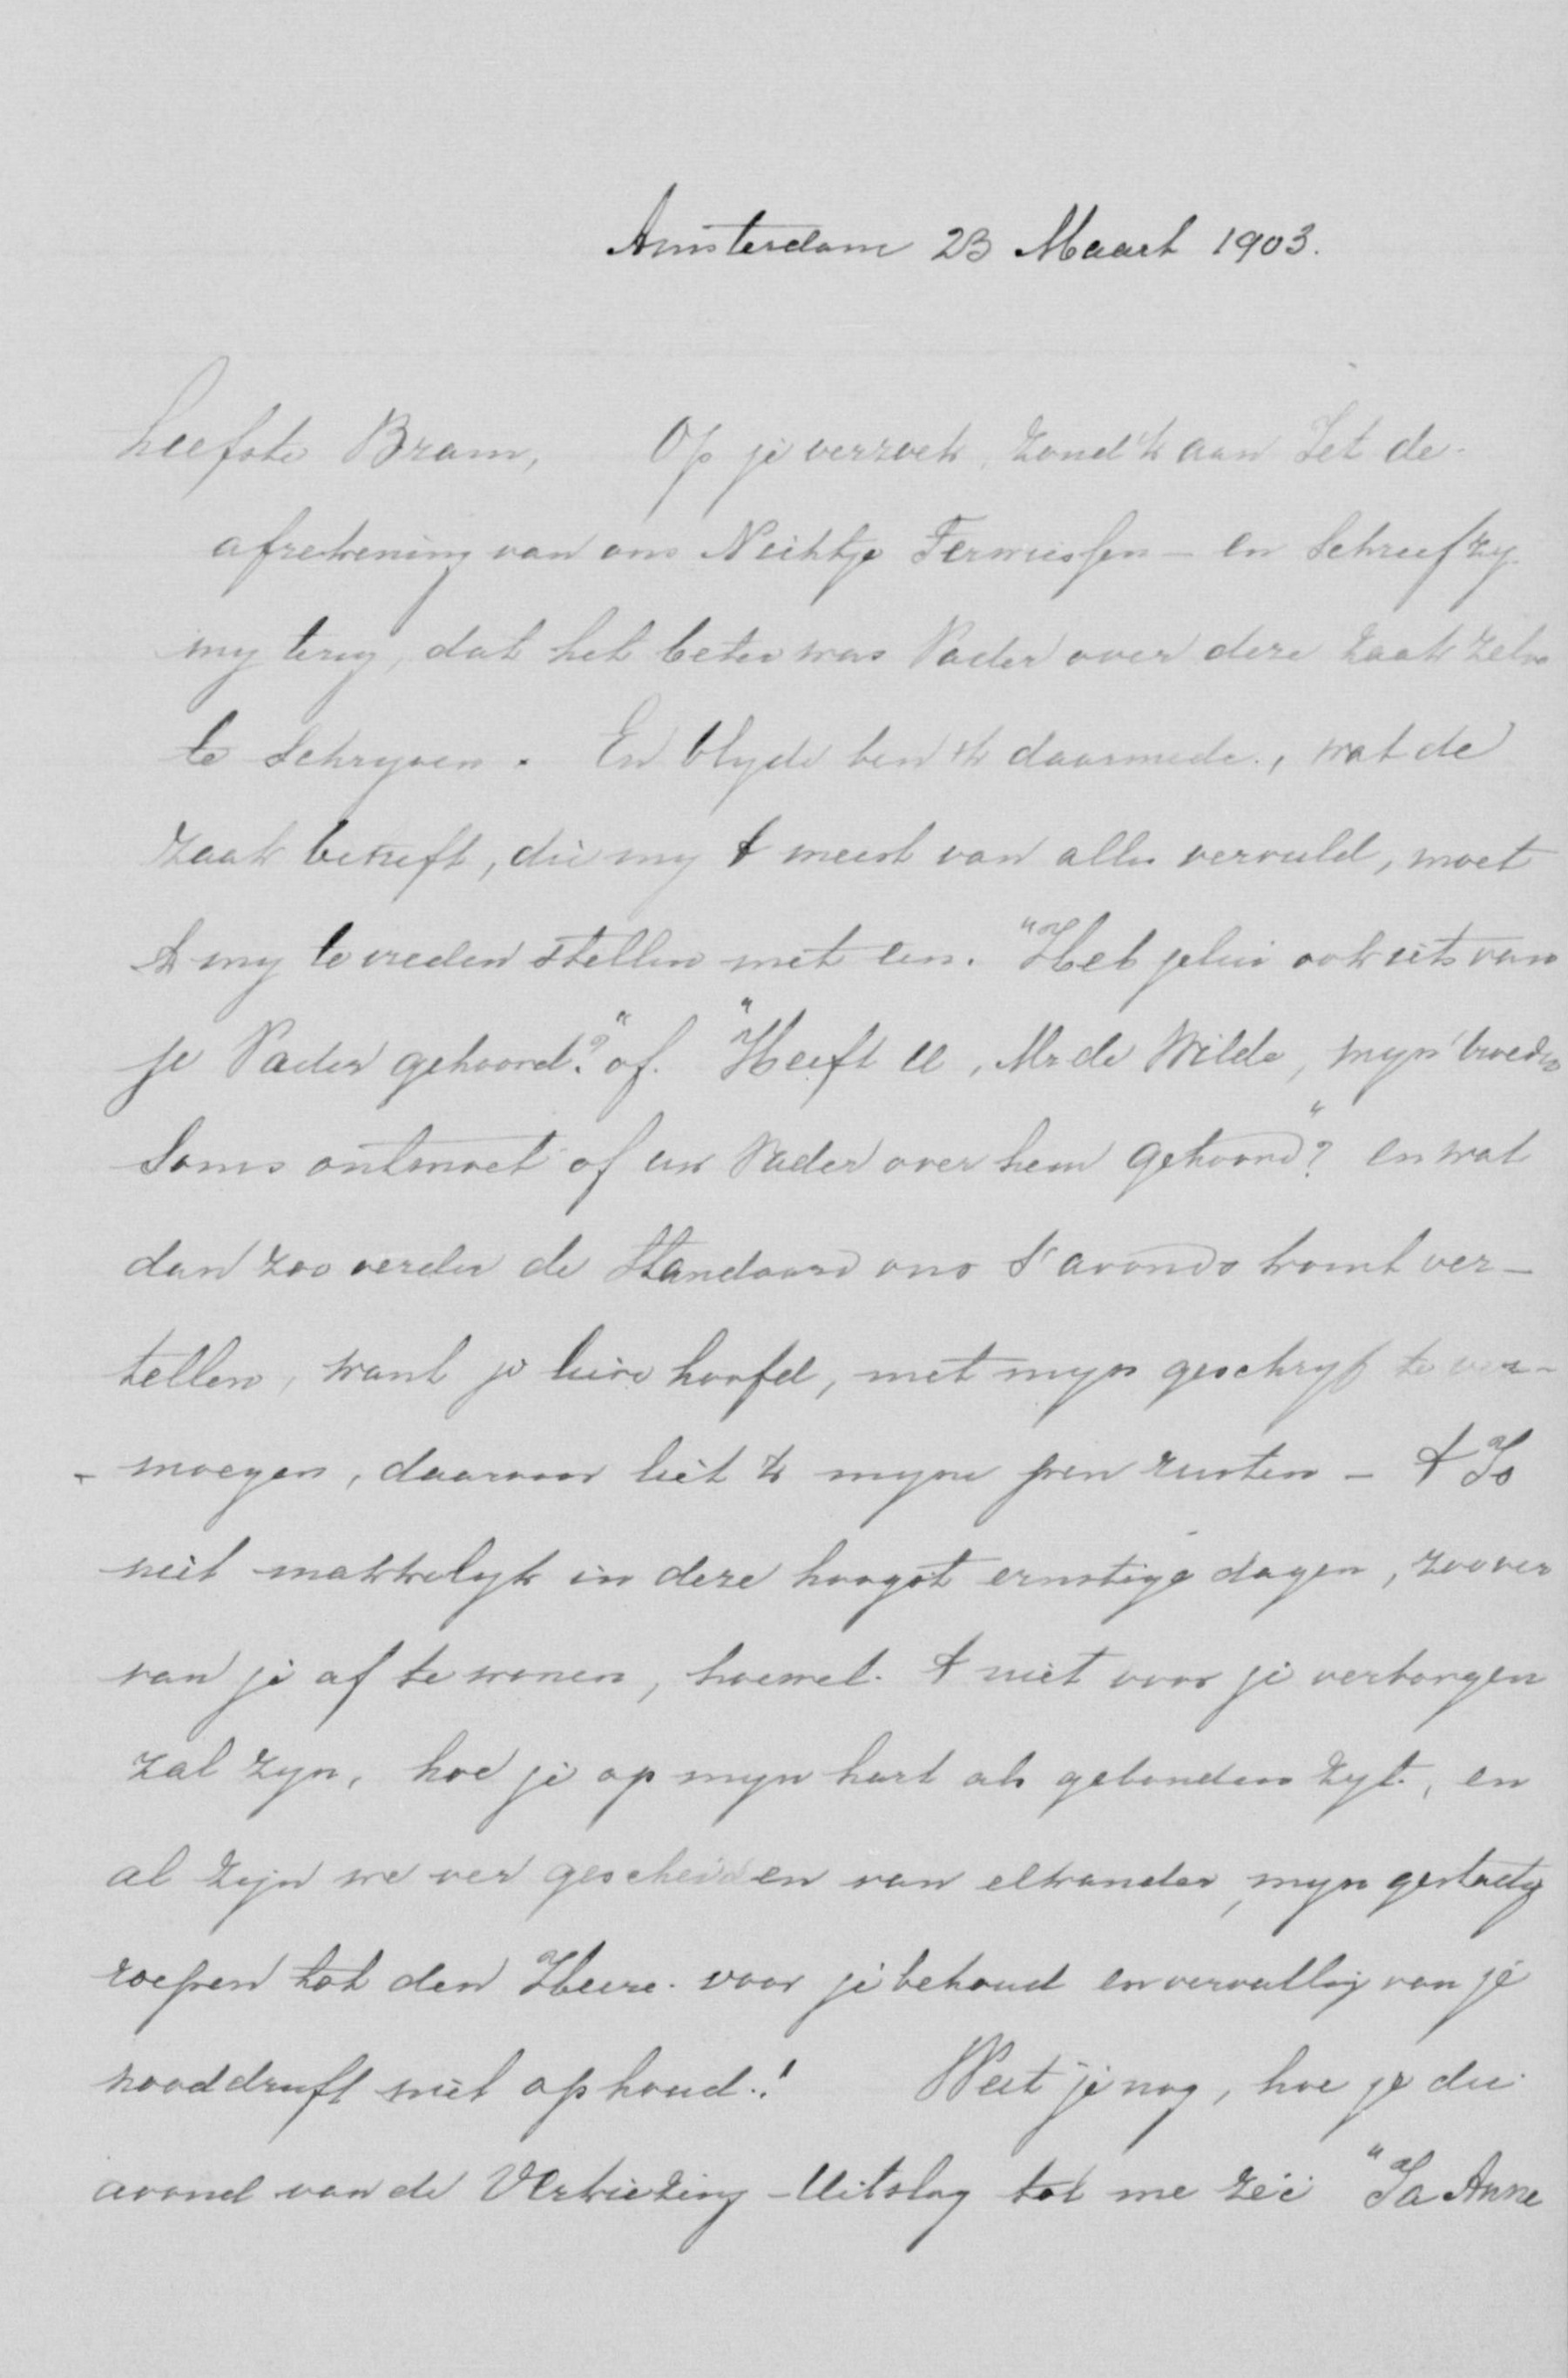 Amsterdam 23 Maart 1903.
Liefste Bram, Op je verzoek, zond 'k aan Jet de
afrekening van ons Nichtje Ferwissen – en schreef zy
my terug, dat het beter was Vader over deze zaak zelve
te schryven. En blyde ben 'k daarmede., wat de
zaak betreft, die my 't meest van alles vervuld, moet
'k my te vreden stellen met een. "Heb jelui ook iets van
je Vader gehoord?" of. "Heeft U, Mr de Wilde, myn broeder
soms ontmoet of uw Vader over hem gehoord"? en wat
dan zoo verder de Standaard ons 's avonds komt ver-
tellen, want je lieve hoofd, met myn geschryf te ver-
- moeyen, daarvoor liet 'k myne pen rusten – 't Is
niet makkelyk in deze hoogst ernstige dagen, zoo ver
van je af te wonen, hoewel. 't niet voor je verborgen
zal zyn, hoe je op myn hart als gebonden zyt., en
al zijn we ver gescheiden van elkander, myn gestadig
roepen tot den Heere. voor je behoud en vervulling van je
nooddruft niet ophoud.! Weet je nog, hoe je die
avond van de Verkiezing-Uitslag tot me zei "Ja Anne